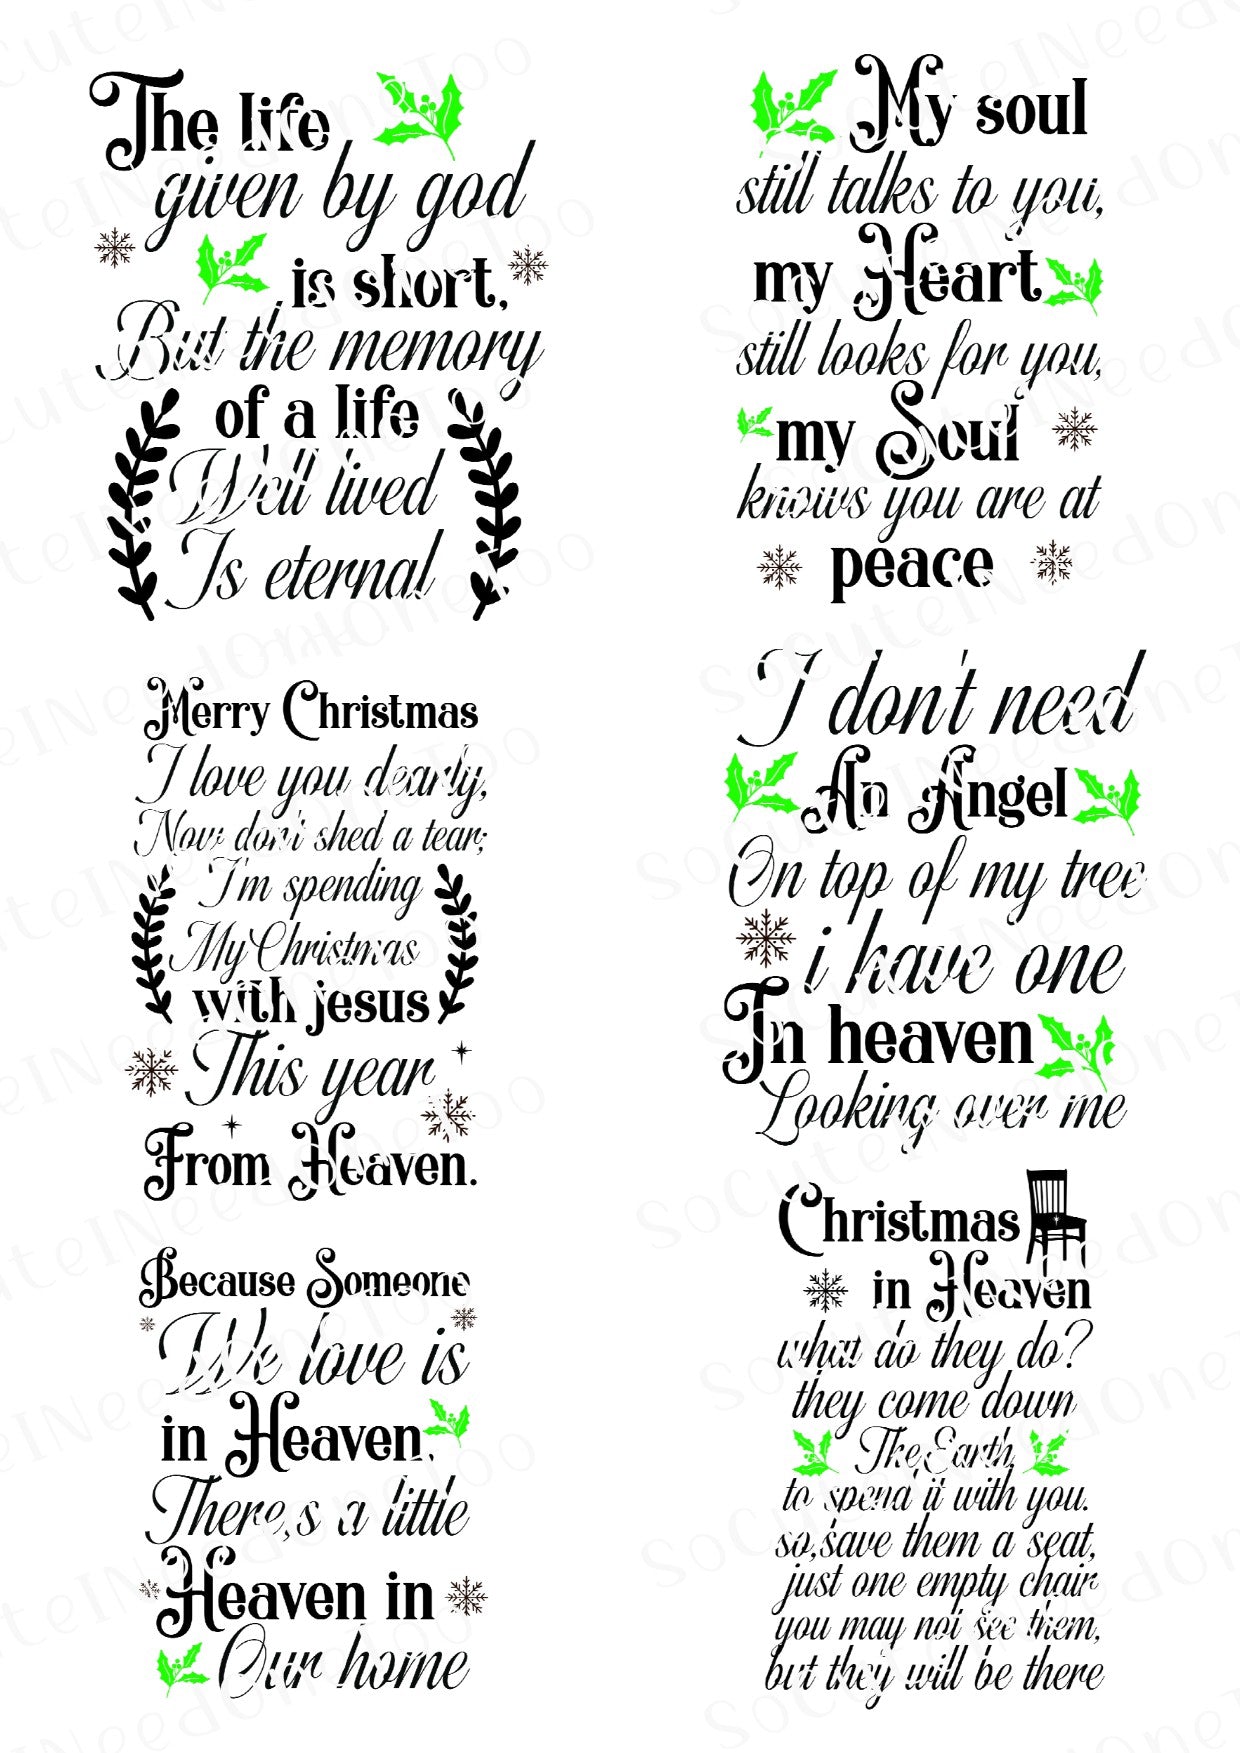 The life
given by god
is short,
But the memory
of a life
Well lived
Is eternal
My soul
still talks to you,
my Heart
still looks for you,
my Soul
knows you are at
peace
Merry Christmas
I love you dearly,
Now don't shed a tear;
I'm spending
My Christmas
with jesus
This year
From Heaven.
I don't need
An Angel
On top of my tree
i have one
In heaven
Looking over me
Because Someone
We love is
in Heaven,
There,s a little
Heaven in
Our home
Christmas
in Heaven
what do they do?
they come down
The Earth,
to spend it with you.
so,save them a seat,
just one empty chair
you may not see them,
but they will be there
SoCuteINeedOneToo